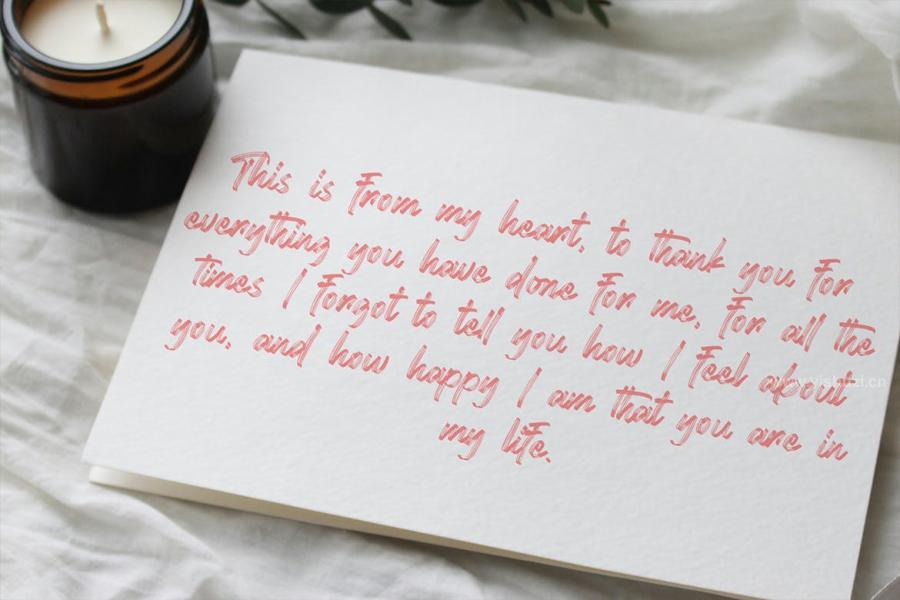 This is from my heart, to thank you for
everything you have done for me, for all the
times I forgot to tell you how I feel about
you, and how happy I am that you are in
my life.